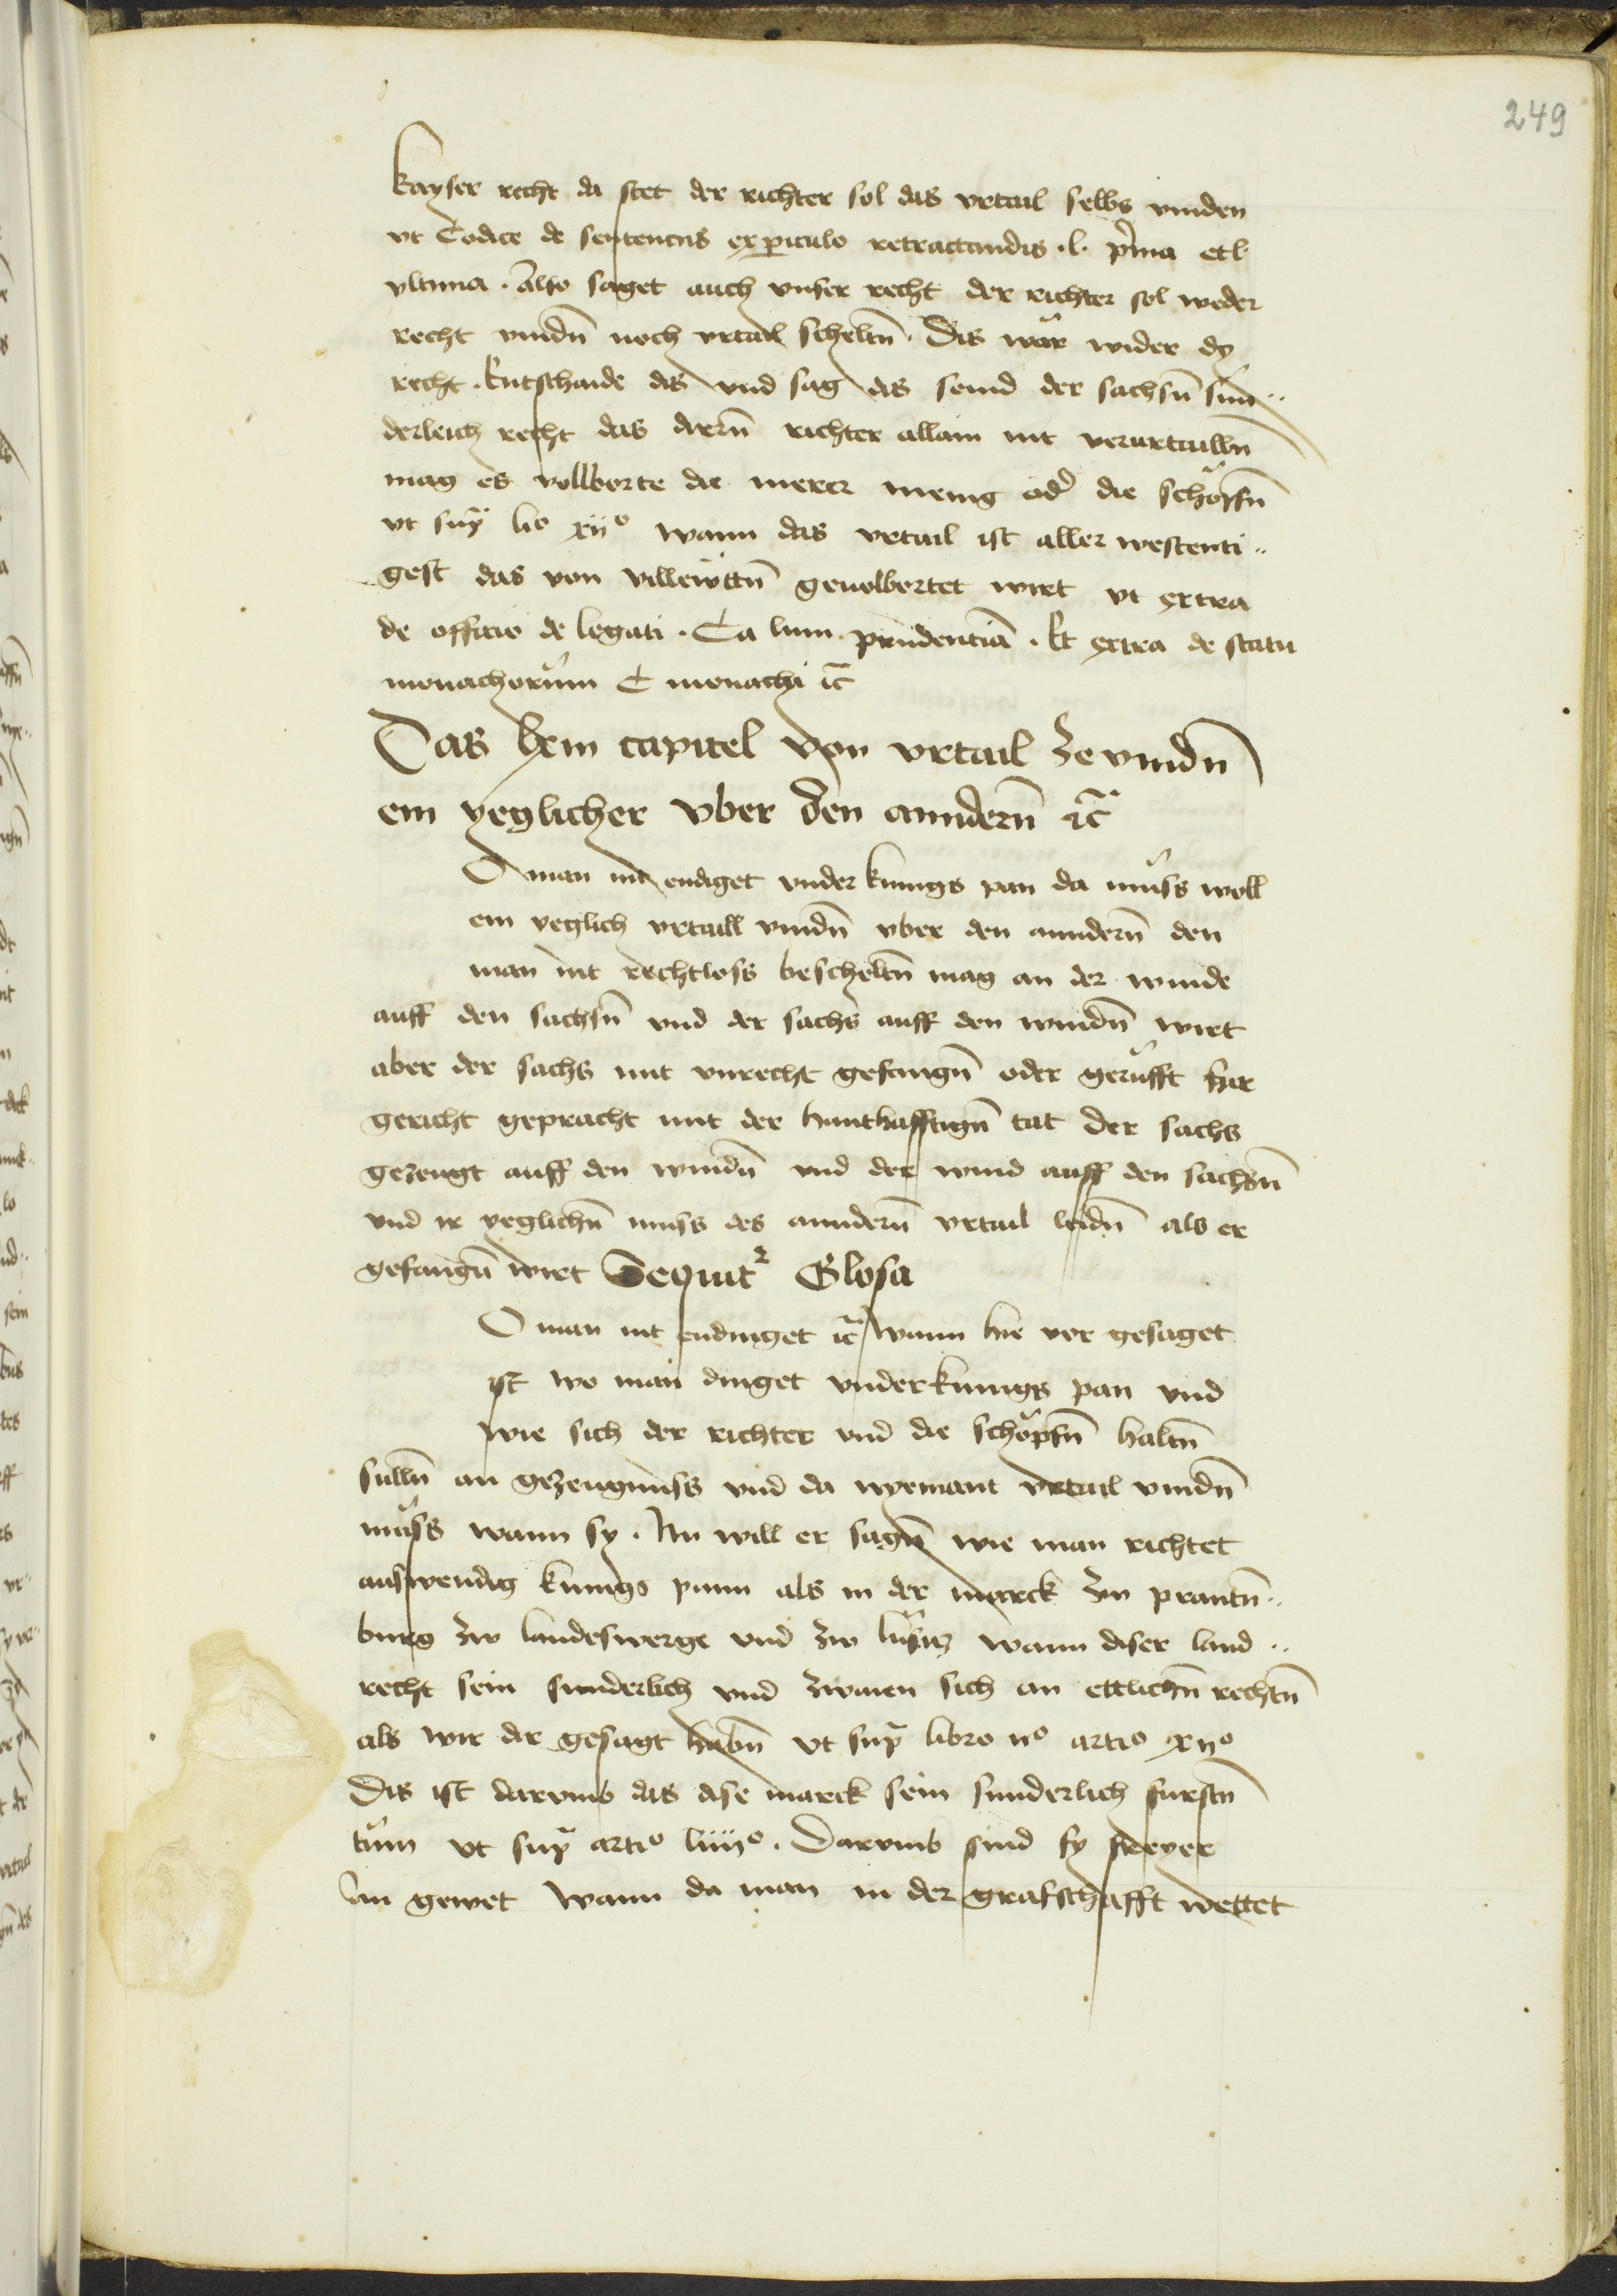 249
kayser recht da stet der richter sol das vrtail selbs vinden
vt Codice de sentencus ex piculo retractandis .l. p̃ma et l.
vltima . Also saget auch vnser recht der richter sol weder
recht vindn̄ noch vrtail scheltn̄ . Das war wider dy
recht . Entschaide das vnd sag das seind der sachsn̄ sun..
derleich recht das dirrn̄ richter allain nit verurtaillen̄
mag es vollborte die merer menig od̛ die schöpfn̄
vt sup̃ lio xijo wann das vrtail ist aller westenti..
gest das von villewttn̄ geuolbortet wirt vt extra
de officio de legati . Ca lum . prudenciā . Et extra de statu
monachorum C monachi ꝛc̄
Das lxm capitel von vrtail ze vindn̄
ein yeglicher vber den anndern̄ ꝛc̄
O man nit endiget vnder kunigs pan da muss woll
ein yeglich vrtaill vindn̄ vber den anndern̄ den
man nit rechtloss bescheltn̄ mag an der winde
auff den sachsn̄ vnd der sachs auff den windn̄ wirt
aber der sachs mit vnrecht gefangn̄ oder gerufft fur
gericht gepracht mit der hanthafftign̄ tat der sachs
gezeugt auff den windn̄ vnd der wind auff den sachsn̄
vnd ir yeglichn̄ muss des anndern̄ vrtail leidn̄ als er
gefangn̄ wirt Sequit² Glosa
O man nit endinget ꝛc̄ wann hie vor gesaget
ist wo man dinget vnder kunigs pan vnd
wie sich der richter vnd die schöpfn̄ haltn̄
sulln̄ an gezeugnuss vnd da nyemant vrtail vindn̄
muss wann sy . Nu will er sagn̄ wie man richtet
auswendig kunigs pann als in der marck zu prantn̄..
burg zw landeswerge vnd zw lusitz wann diser land..
recht sein sunderlich vnd zwaien sich an ettlichn̄ rechtn̄
als wir dir gesagt habn̄ vt sup̃ libro ijo artio xijo
Das ist darvmb das dise marck sein sunderlich furstn̄
tum vt sup̃ artio liiijo . Darvmb sind sy freyer
an gewet wann da man in der grafschafft wettet